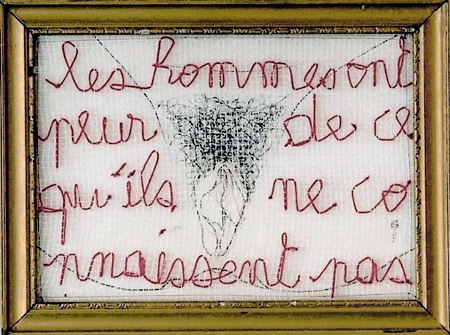 les hommes ont
peur de ce
qu'ils ne co
nnaissent pas